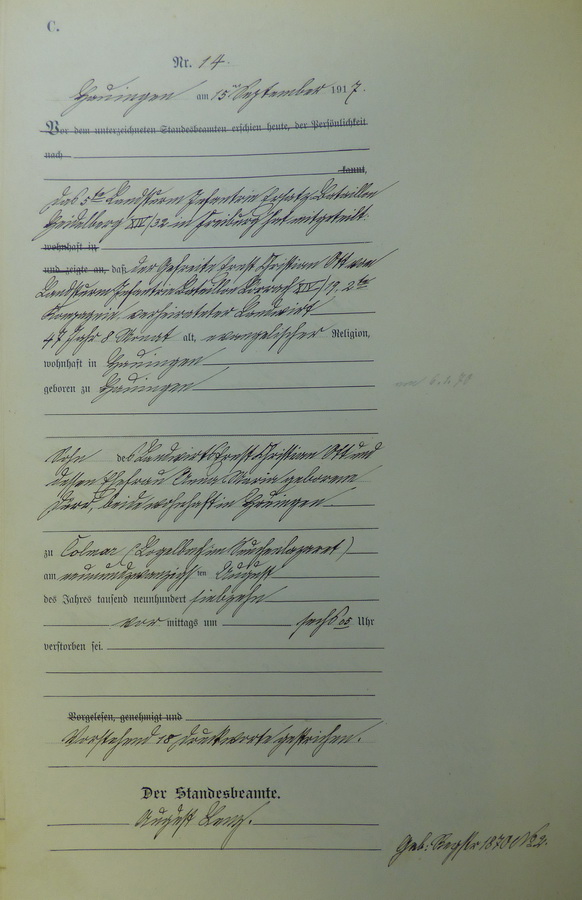 C.
Nr. 14.
Hauingen am 15ten September 1917.
Vor dem unterzeichneten Standesbeamten erschien heute, der Persönlichkeit
nach
kannt,
Das 5te Landsturm Infanterie Ersatz Bataillon
Heidelberg XIV/32 in Freiburg hat mitgeteilt:
wohnhaft in
und zeigte an, daß der Gefreite Ernst Christian Ott vom
Landsturm Infanterie Bataillon Lörrach XIV/ 2te
Kompagnie, verheirateter Landwirt
47 Jahr 8 Monat alt, evangelischer Religion,
wohnhaft in Hauingen
geboren zu Hauingen
Sohn des Landwirts Ernst Christian Ott und
dessen Ehefrau Anna Maria geborenen
beide wohnhaft in Hauingen
zu Colmar (Logelbach im Seuchenlazaret)
am neunundzwanzigsten August
des Jahres tausend neunhundert siebzehn
vor mittags um sechs 05 Uhr
verstorben sei.
Vorgelesen, genehmigt und
Vorstehend 18 Druckworte gestrichen.
Der Standesbeamte.
August
Geb. Regstr 1870 No 2.